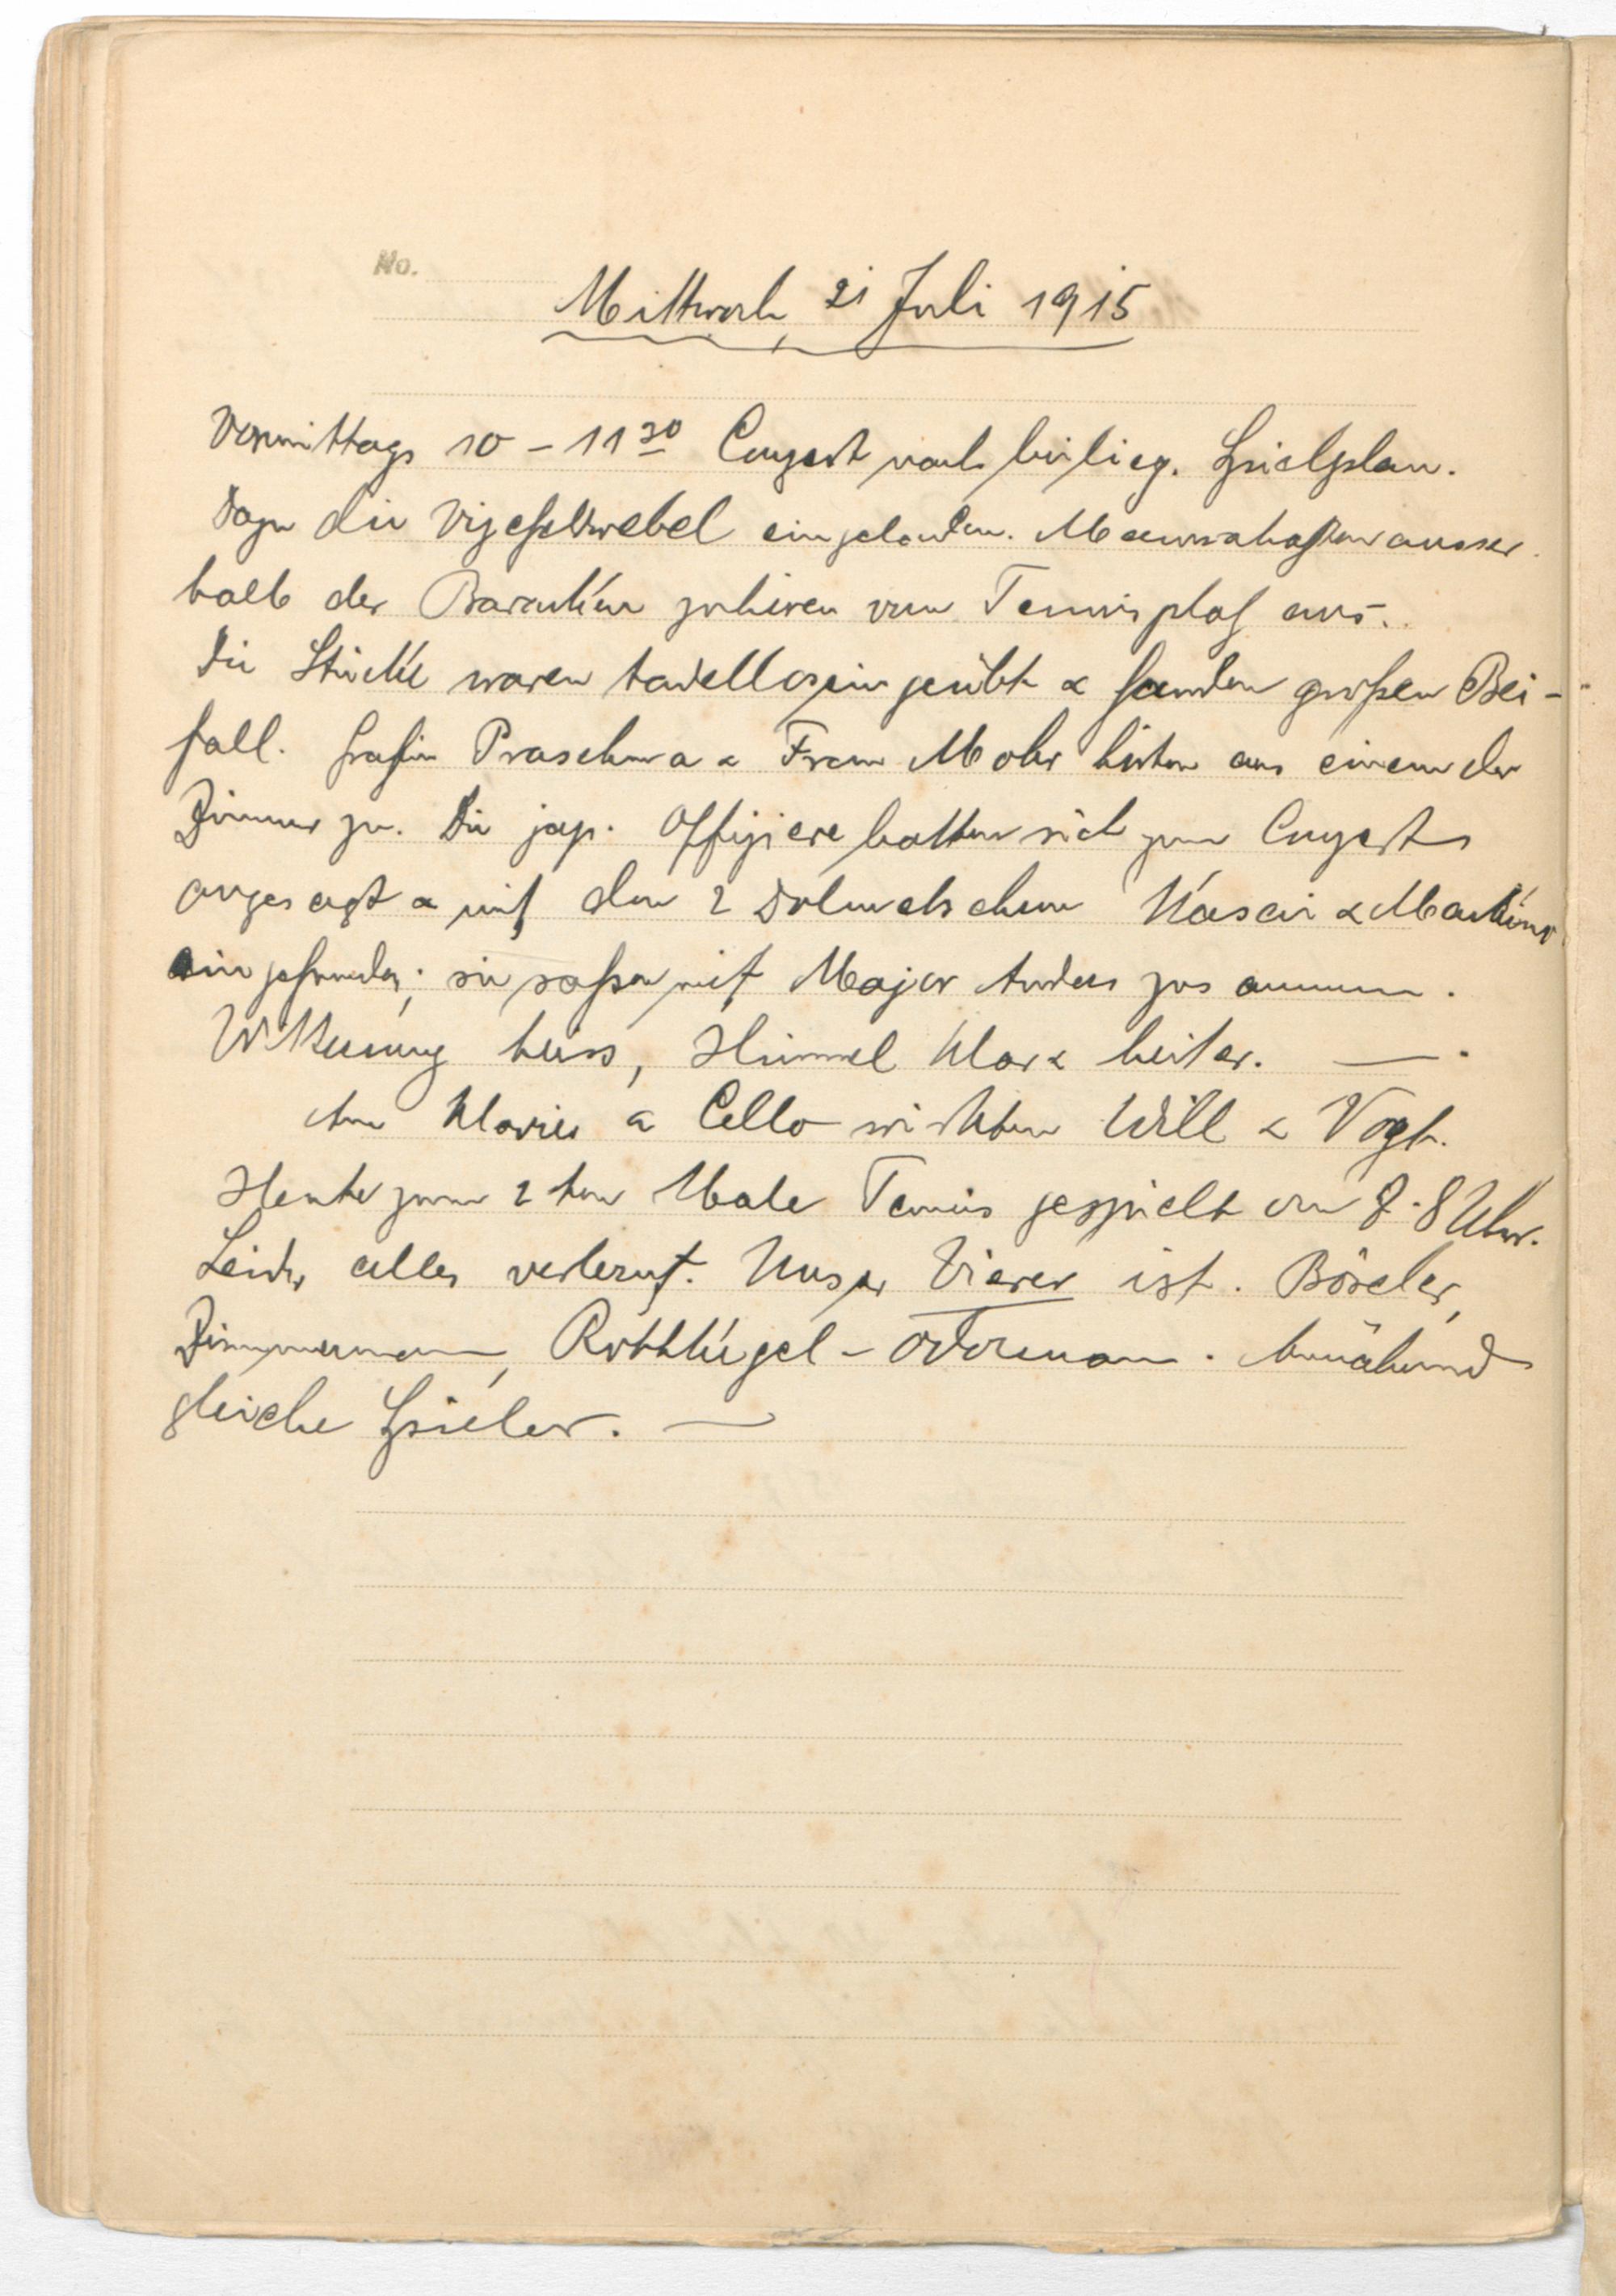 No.
Mittwoch, 21 Juli 1915
Vormittags 10 - 11 30 Conzert nach beilieg. Spielplan.
Dazu die Vizefeldwebel eingeladen. Mannschaften ausser
halb der Baracken zuhören vom Tennisplatz aus.
Die Stücke waren tadellos eingeübt & fanden großen Bei-
fall. Gräfin Praschma & Frau Mohr hörten aus einem der
Zimmer zu. Die jap. Offiziere hatten sich zum Conzert
angesagt & mit den 2 Dolmetschern Kasai &
eingefunden; sie saßen mit Major Anders zusammen.
Witterung heiss, Himmel klar & heiter. —
Am Klavier & Cello wirkten Will & Vogt.
Heute zum 2ten Male Tennis gespielt von 7-8 Uhr.
Leider alles verlernt. Unser Vierer ist. Böseler,
Zimmermann, Rottkügel - Odermann. Annähernd
gleiche Spieler. —